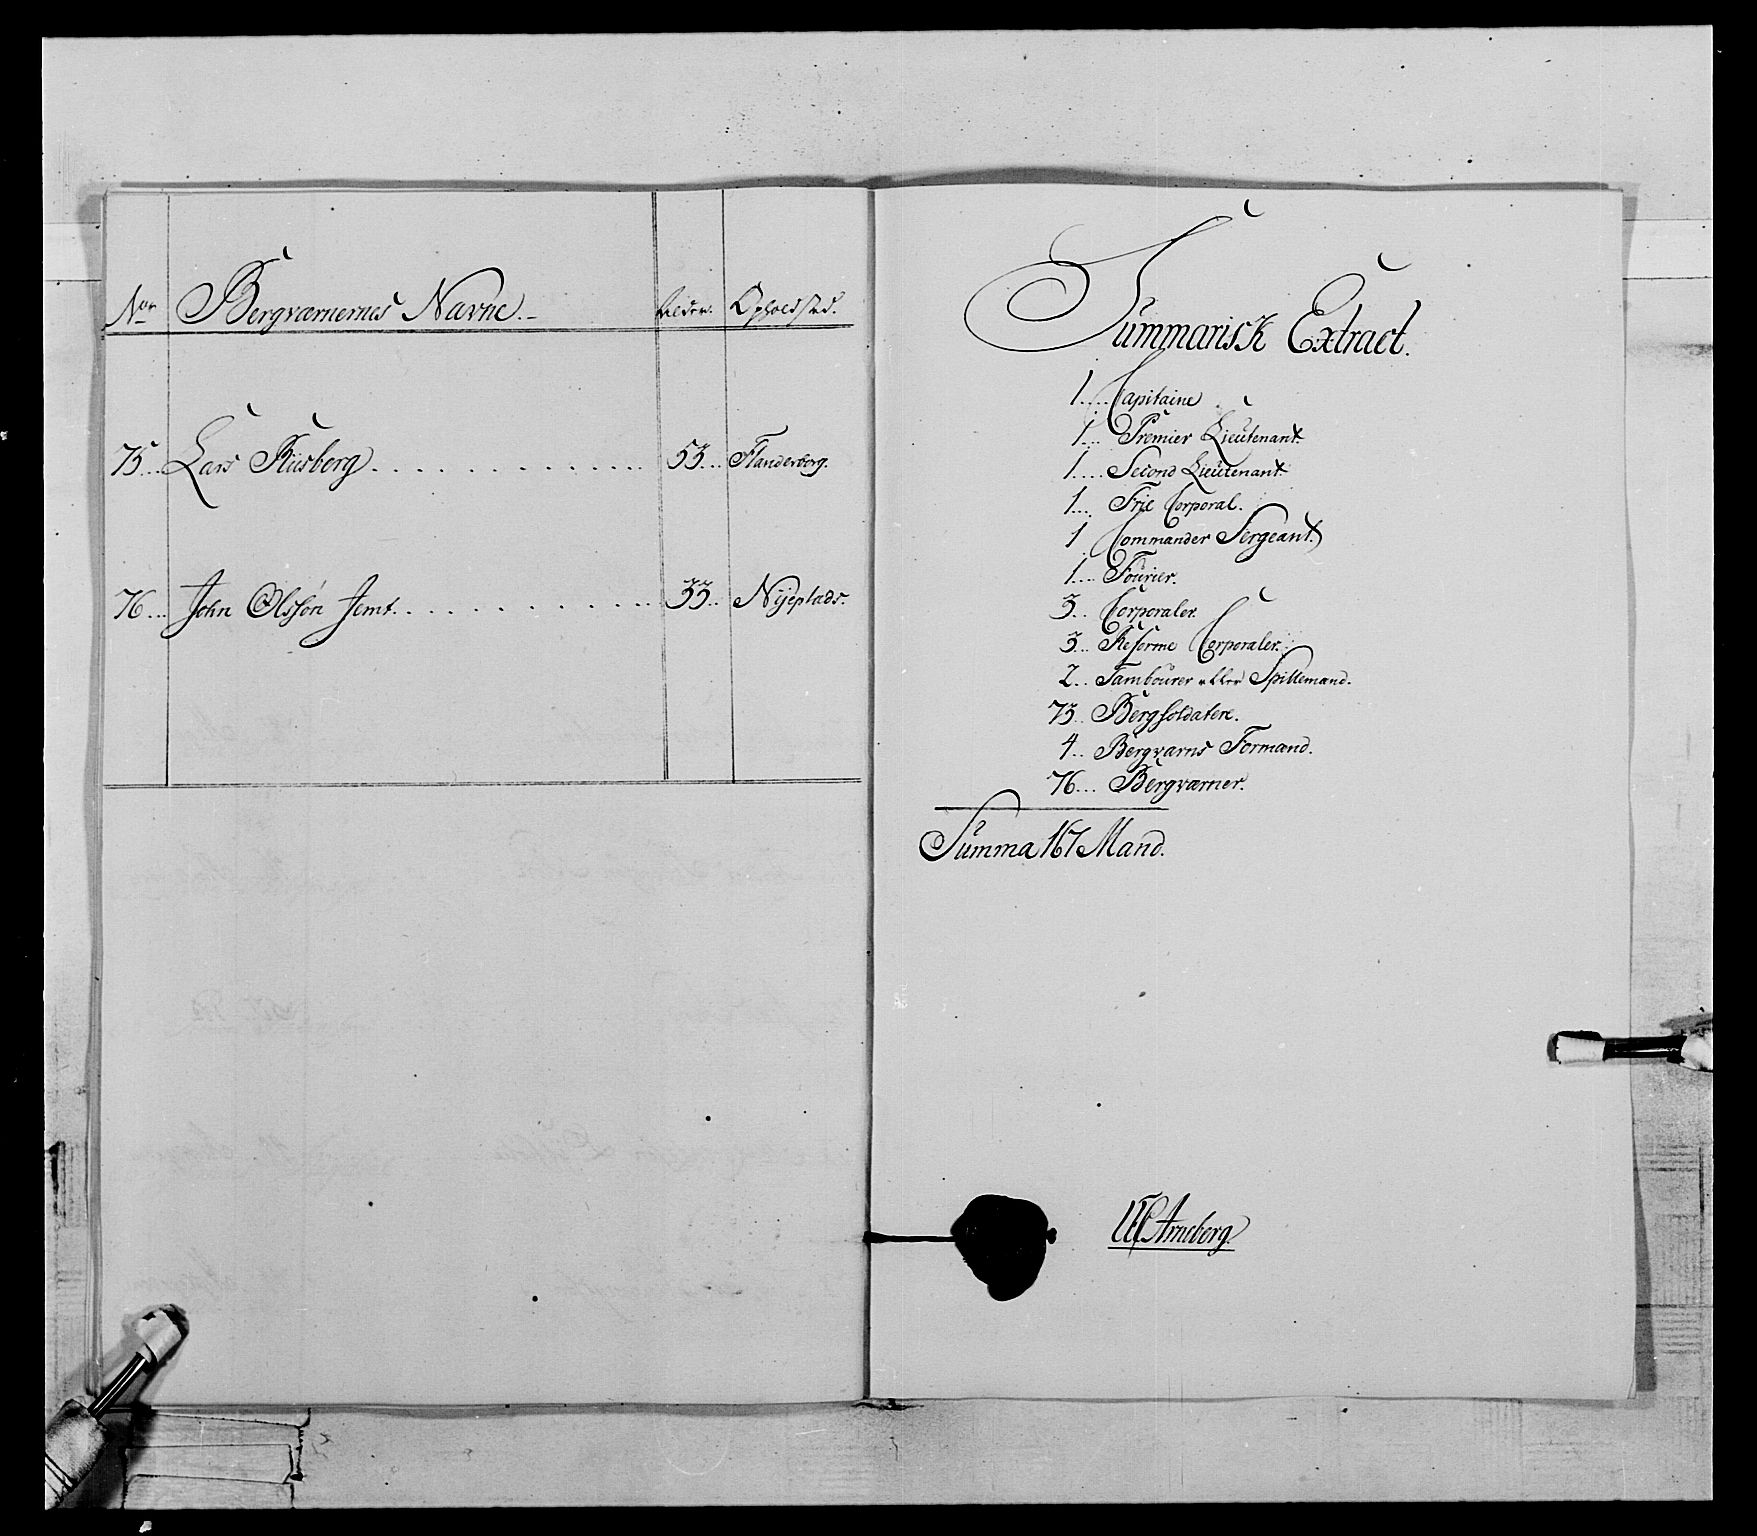 No Bergværnernes Navne. Alder. Opholdsted.
75... Lars Riisberg 53... Flanderborg.
76... John Olssøn Jemt. 33.. Nyeplads.
Summarisk Extract.
1.... Capitaine
1... Premier Lieutenant
1.... Second Lieutenant
1.... Frie Corporal.
1 Commander Sergeant.
1.... Fourier.
3.. Corporaler.
3... Reforme Corporaler.
2.. Tambourer eller Spillemænd.
73.. Bergsoldatere.
4.. Bergværns Formænd.
76... Bergværner.
Summa 167 Mand.
Arneberg.